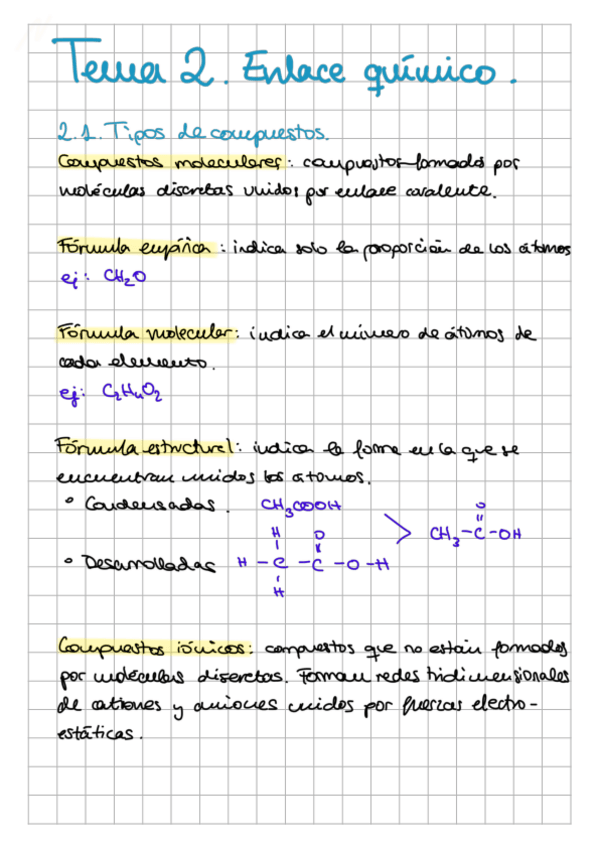 Tema 2. Enlace químico.
2.1. Tipos de compuestos.
Compuestos moleculares: compuestos formados por
moléculas discretas unidos por enlace covalente.
Fórmula empírica: indica solo la proporción de los átomos
ej: CH₂O
Fórmula molecular: indica el número de átomos de
cada elemento.
ej: C₂H₄O₂
Fórmula estructural: indica la forma en la que se
encuentran unidos los átomos.
° Condensadas. CH₃COOH
° Desarrolladas
H O
H - C - C - O - H
H
> O
CH₃ - C - OH
Compuestos iónicos: compuestos que no están formados
por moléculas discretas. Forman redes tridimensionales
de cationes y aniones unidos por fuerzas electro-
estáticas.